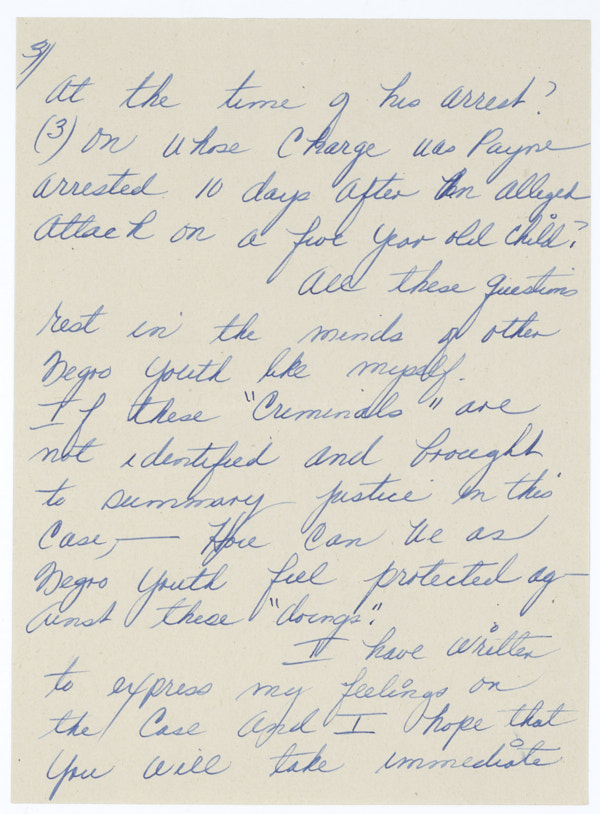 3)
At the time of his arrest?
(3) On whose Charge was Payne
arrested 10 days after an alleged
attack on a five year old child?
All these questions
rest in the minds of other
Negro Youth like myself.
If these "Criminals" are
not identified and brought
to summary justice in this
Case, — How can we as
Negro Youth feel protected ag-
ainst these "doings".
I have written
to express my feelings on
the Case and I hope that
you will take immediate